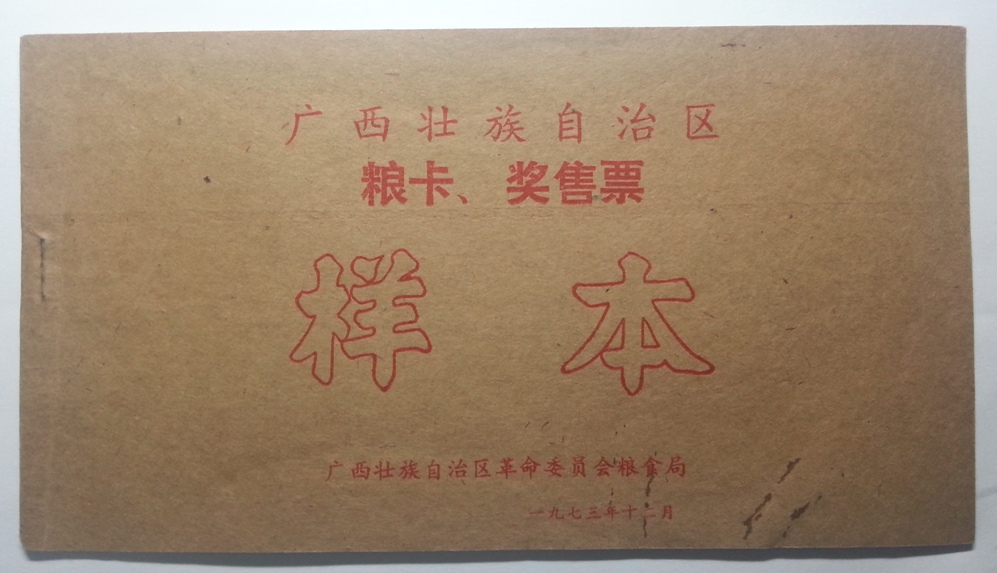 广西壮族自治区
粮卡、奖售票
样本
广西壮族自治区革命委员会粮食局
一九七三年十二月